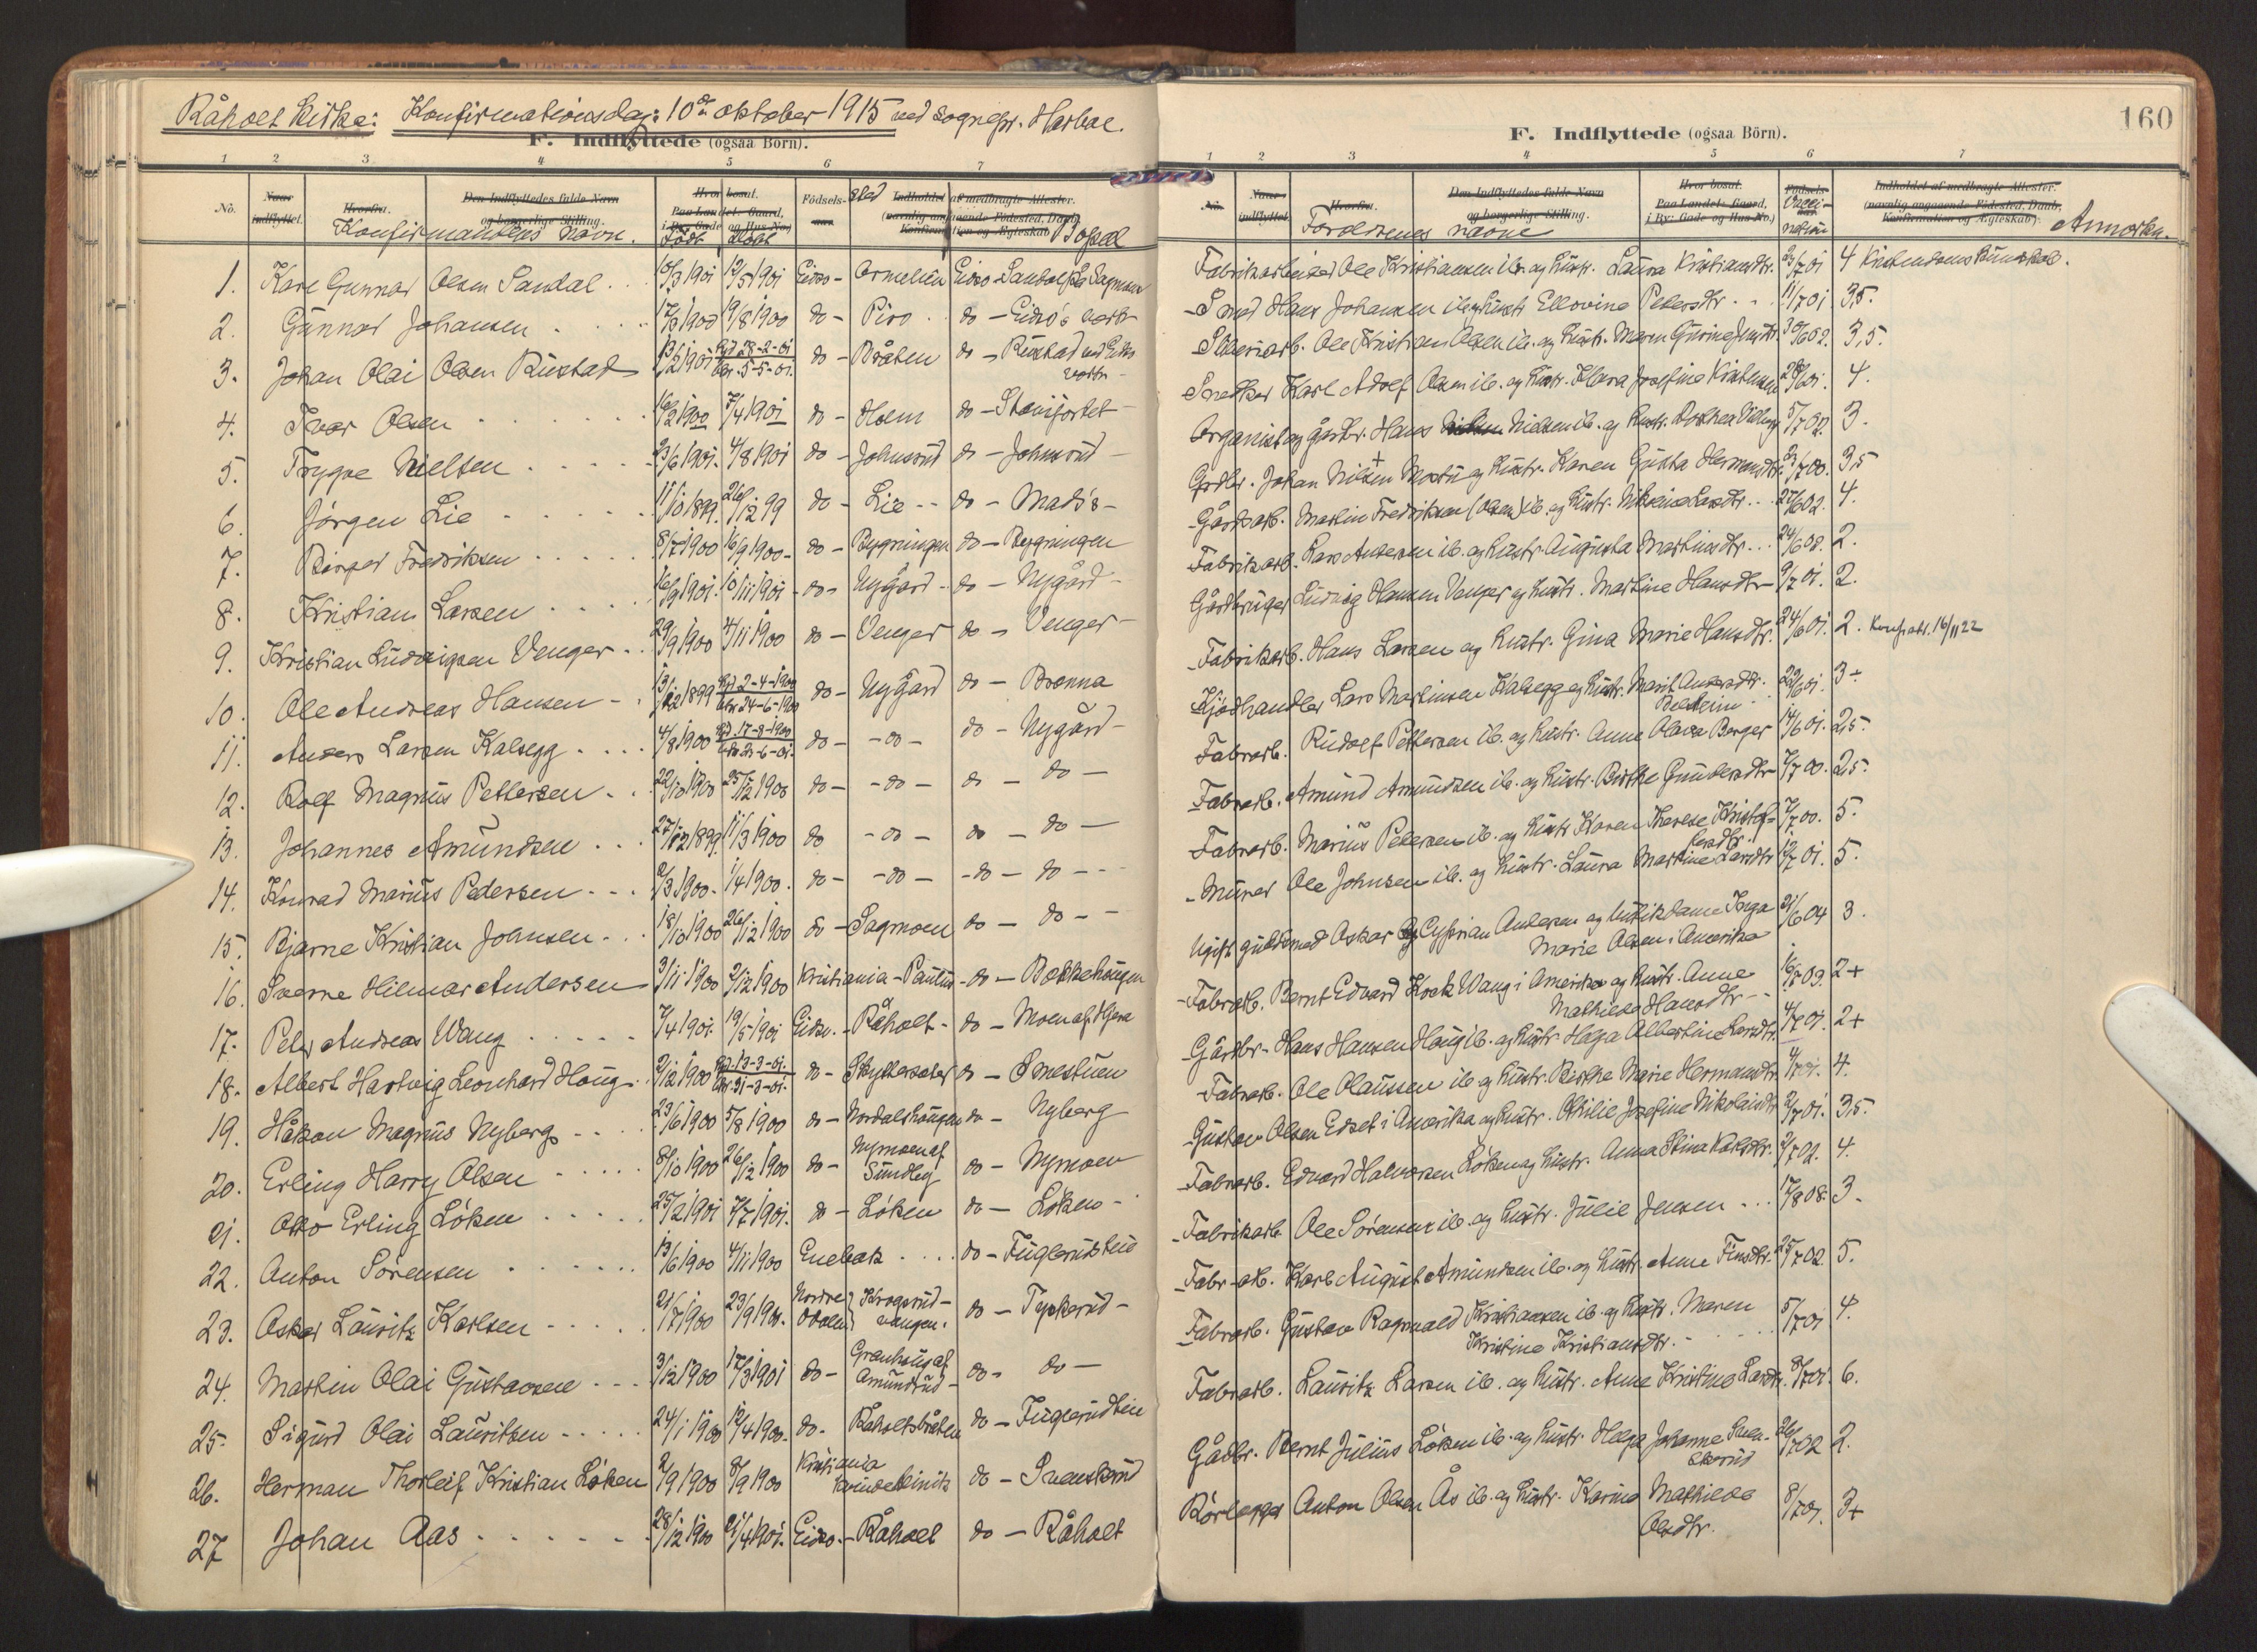 Råholt Kirke: Konfirmationsdag: 10de oktober 1915 ved sognepr. Harboe.
F. Indflyttede (ogsaa Börn).
1 2 3 4 5 6 7
No. Naar indflyttet. Hvorfra. Den Indflyttedes fulde Navn og borgerlige Stilling. Hvor bosat. Paa Landet: Gaard, i By: Gade og Hus-No.) Födsels- sted Indholdet af medbragte Attester. (navnlig angaaende Födested, Daab, Konfirmation og Ægteskab)
Konfirmandens navn. Født Døbt Bopæl
1. Kare Gunnar Olsen Sandal . . 15/3 1901 12/5 1901 Eidsv- Ormelien Eidsv-Sandal på Sagmoen
2. Gunnar Johansen . . . . 17/3 1900 19/8 1900 do - Piro . . do - Eidsv's værk
3. Johan Olai Olsen Rustad 13/2 1901 Hjd. 28-2-01 Kr. 5-5-01. do - Bråten do - Rustad ved Eidsv værk -
4. Ivar Olsen . . . . . 16/2 1900 7/4 1901 do - Holm do - Stavifortet -
5. Trygve Nielsen . . . . 23/6 1901. 4/8 1901 do - Johnsrud do - Johnsrud -
6. Jørgen Lie . . . . . 11/10 1899. 26/12 99 do - Lie - - do - Mads's -
7. Birger Fredriksen . . . . 8/7 1900 16/9 1900 - do - Bygningen do - Bygningen
8. Kristian Larsen . . . . 16/9 1901. 10/11 1901 - do - Nygård - do - Nygård -
9. Kristian Ludvigsen Venger . . 29/9 1900 4/11 1900 do - Venger do - Venger -
10. Ole Andreas Hansen - . 13/12 1899 Hjd. 2-4-1900 Kr. 24-6-1900 do - Nygård do - Brenna
11. Anders Larsen Kalsegg . . . . 4/8 1900 Hjd. 17-8-1900 do - - do - do - Nygård -
12. Rolf Magnus Pettersen . . 22/10 1900 25/12 1900 do - - do - do - do -
13. Johannes Amundsen . . . 27/12 1899. 11/3 1900 do - do - do - do -
14. Konrad Marius Pedersen . . . 2/3 1900. 1/4 1900. do - - do - - do - do - -
15. Bjarne Kristian Johnsen . . 18/10 1900 26/12 1900 do - Sagmoen do - do - -
16. Sverre Hilmar Andersen 3/11 1900 2/12 1900 Kristiania - Paulus - do - Bakkehaugen
17. Peter Andreas Wang . . . . . 7/4 1901. 19/5 1901 Eidsv. - Råholt - do - Moen af Hjera
18. Albert Hartvig Leonhard Haug . 2/12 1900 Hjd. 13-3-01. Kr. 31-3-01. do - Skyttersæter do - Smestuen
19. Håkon Magnus Nyberg . . . 23/6 1900 5/8 1900 do - Nordalshaugen do - Nyberg
20. Erling Harry Olsen . . . . . 8/10 1900 26/12 1900 do - Nymoen af Sundby do - Nymoen
21. Otto Erling Løken . . . . . 25/2 1901 7/7 1901. do - Løken do - Løken -
22. Anton Sørensen . . . . . . 13/6 1900 4/11 1900 Enebak . . . . do - Fuglerudteie
23. Oskar Lauritz Karlsen . . . . . 21/7 1900 23/9 1900. Nordre Odalen Krogsrud-vangen. do - Tyskerud -
24. Martin Olai Gustavsen . . . 3/12 1900 17/3 1901 do - Granhaug af Amundrud - do - do -
25. Sigurd Olai Lauritsen . . . . . 24/1 1900 12/4 1900. do. Råholtsbråten do - Fuglerudteie
26. Herman Thorleif Kristian Løken 2/9 1900 8/9 1900 Kristiania Kvindeklinik do - Svenskerud
27 Johan Aas . . . . . . 28/12 1900 21/4 1901. Eidsv. - Råholt do - Råholt
160
F. Indflyttede (ogsaa Börn).
1 2 3 4 5 6 7
No. Naar indflyttet. Hvorfra. Den Indflyttedes fulde Navn og borgerlige Stilling. Hvor bosat. Paa Landet: Gaard, i By: Gade og Hus-No.) Födsels- Indholdet af medbragte Attester. (navnlig angaaende Födested, Daab, Konfirmation og Ægteskab).
Forældrenes navne Vacci-nation Anmerkn.
Fabrikarbeider Ole Kristiansen ib. og hustr. Laura Kristiansdtr. 23/7 01 4 Kristendoms Kundskab.
- Smed Hans Johansen ib. og hustr. Ellovine Petersdtr . . . 11/7 01 3,5.
Sliberiarb. Ole Kristian Olsen ib. og hustr. Maren Gurine 30/6 02. 3,5.
Snedker Karl Adolf Olsen ib. og hustr. Klara Josefine Kristensen 28/6 01. 4.
Organist og gårdbr. Hans Nielsen ib. og hustr. Dorthea 5/7 02. 3.
Grdbr. Johan Nilsen Mostu og hustr. Karen Gusta Hermansdtr. 23/7 00. 3,5
- Gårdsarb. Martin Fredriksen (Olsen) ib. og hustr. Nikoline Larsdtr . . 27/6 02. 4.
Fabrikarb. Lars Andersen ib. og hustr. Augusta Martinsdtr . . . 24/6 08. 2.
Gårdbruger Ludvig Hansen Venger og hustr. Martine Hansdtr - 9/7 01. 2.
- Fabrikarb. Hans Larsen og hustr. Gina Marie Hansdtr. 24/6 01. 2. Konf.att. 16/11 22
Kjødhandler Lars Martinsen Kalsegg og hustr. Marit Andersdtr. Belsheim 22/6 01. 3 +
Fabrarb. Rudolf Pettersen ib. og hustr. Anne Olava Berger 14/6 01. 2,5.
Fabrarb. Amund Amundsen ib. og hustr. Berthe Gundersdtr 7/7 00. 2,5.
Fabrarb. Marius Petersen ib. og hustr. Karen Therese Kristof-fersdtr. 7/7 00. 5.
- Murer Ole Johnsen ib. og hustr. Laura Martine Larsdtr 12/7 01. 5.
Ugift guldsmed Oskar Cyprian Andersen og butikdame Inga Marie Olsen i Amerika 21/6 04 3.
- Fabrarb. Bernt Edvard Kock Wang i Amerika og hustr. Anne Mathilde Hansdtr - - 16/7 03. 2 +
Gårdbr - Hans Hansen Haug ib. og hustr. Helga Albertine Larsdtr. 4/7 01. 2 +
Fabrarb. Ole Olaussen ib. og hustr. Birthe Marie Hermansdtr. 4/7 01. 4.
Gustav Olsen Edset i Amerika og hustr. Othilie Josefine Nikolaidtr 2/7 01. 3,5.
- Fabrarb. Edvard Halvorsen Løken og hustr. Anna Stina Karlsdtr. 2/7 02. 4.
- Fabrikarb Ole Sørensen ib. og hustr. Julie Jensen . . . 17/8 08. 3.
- Fabr-arb. Karl August Amundsen ib. og hustr. Anne Finsdtr. 25/7 02. 5.
Fabrarb. Gustav Ragnvald Kristiansen ib. og hustr. Maren Kristine Kristiansdtr. - 5/7 01 4.
Fabrarb. Lauritz Larsen ib. og hustr. Anne Kristine Larsdtr. 8/7 01. 6.
Gådbr. Bernt Julius Løken ib. og hustr. Helga Johanne Sven-skerud 26/7 02 2.
Rørlegger Anton Olsen Ås ib. og hustr. Karine Mathilde Olsdtr. 8/7 01. 3+